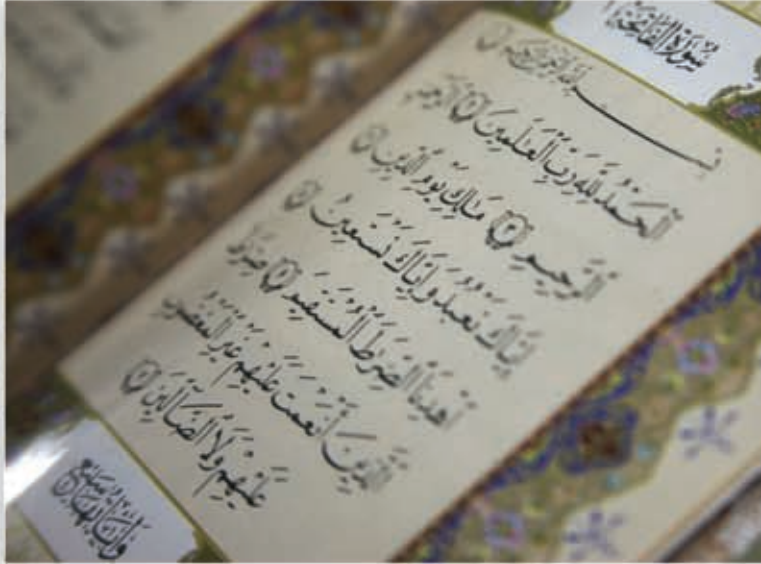 سورة الفاتحة
بِسْمِ اللَّهِ الرَّحْمَٰنِ الرَّحِيمِ ۝١
الْحَمْدُ لِلَّهِ رَبِّ الْعَالَمِينَ ۝٢ الرَّحْمَٰنِ
الرَّحِيمِ ۝٣ مَالِكِ يَوْمِ الدِّينِ ۝٤
إِيَّاكَ نَعْبُدُ وَإِيَّاكَ نَسْتَعِينُ ۝٥
اهْدِنَا الصِّرَاطَ الْمُسْتَقِيمَ ۝٦ صِرَاطَ
الَّذِينَ أَنْعَمْتَ عَلَيْهِمْ غَيْرِ الْمَغْضُوبِ
عَلَيْهِمْ وَلَا الضَّالِّينَ ۝٧
وآياتها سبع